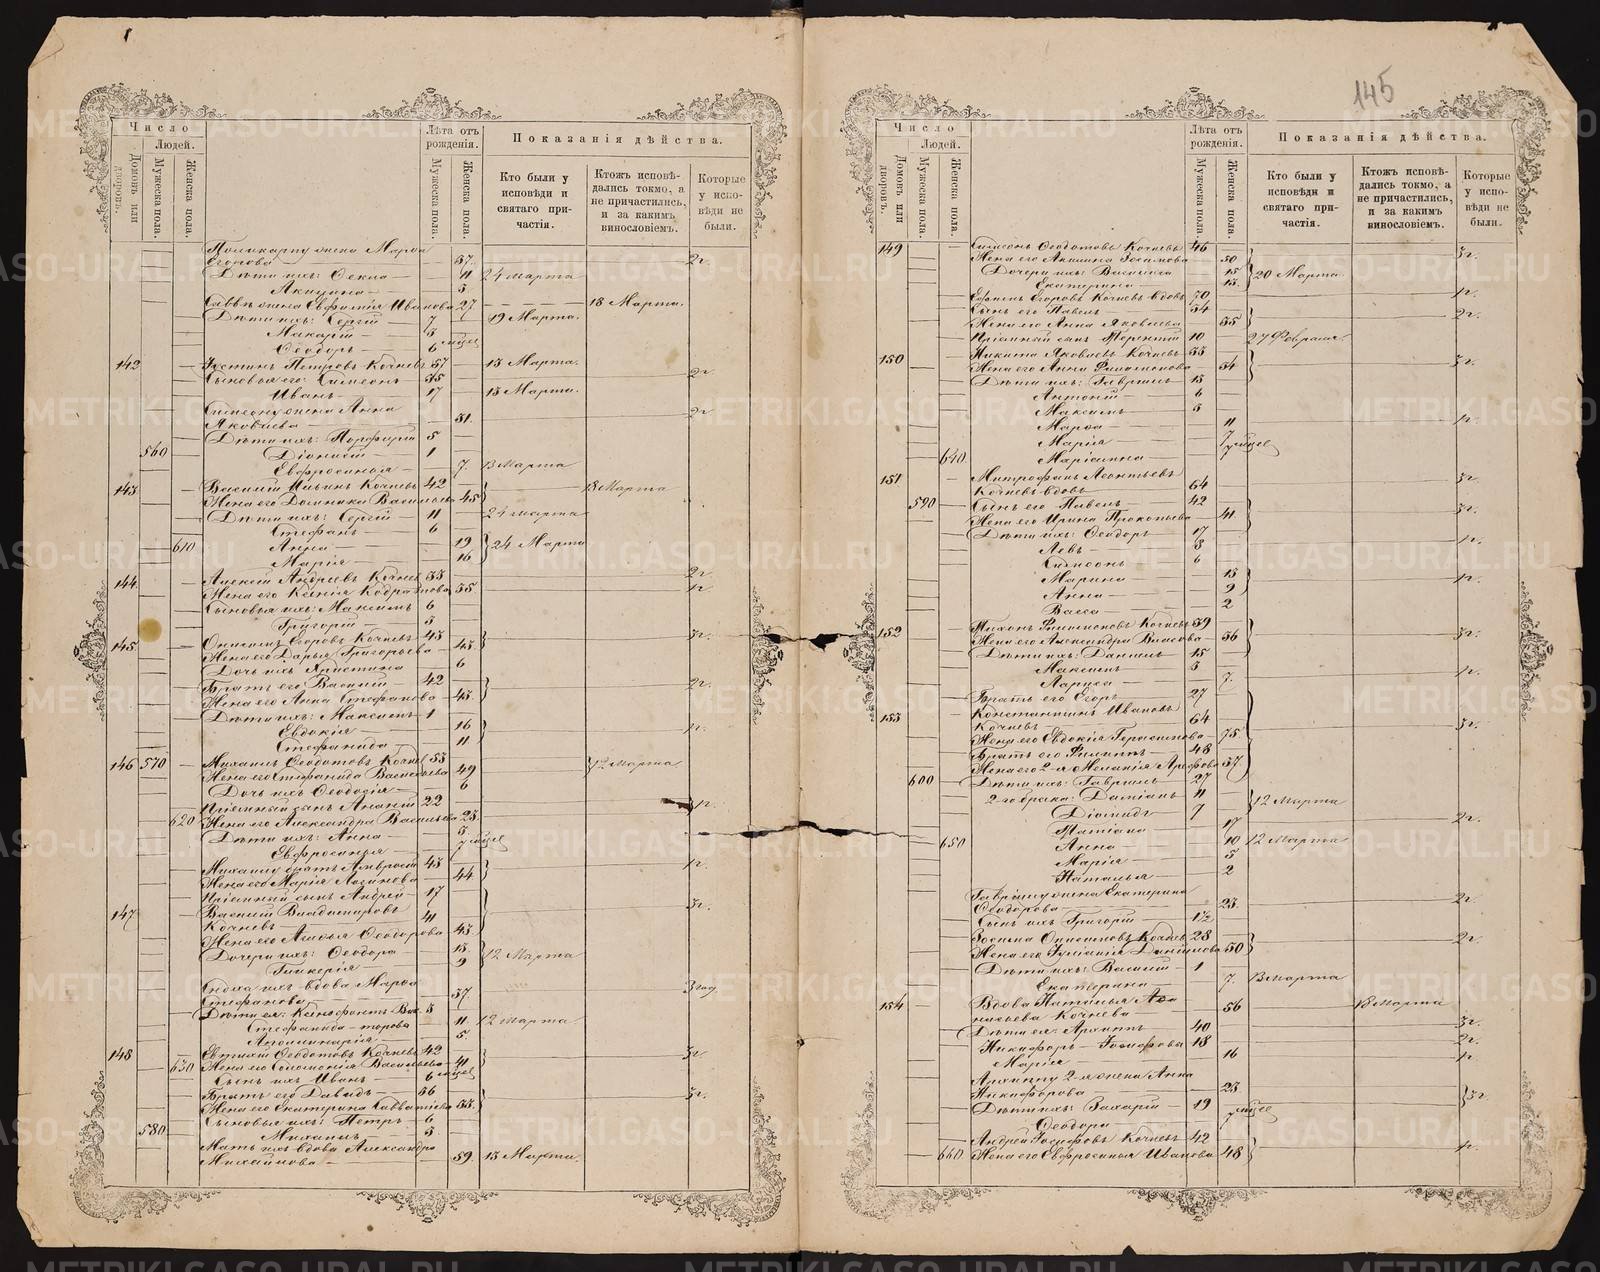 145
Число
Людей.
Домовъ или дворовъ.
Мужеска пола.
Женска пола.
Лѣта отъ рожденія.
Мужеска пола.
Женска пола.
Показанія дѣйства.
Кто были у исповѣди и святаго причастія.
Ктожъ исповѣдались токмо, а не причастились, и за какимъ винословіемъ.
Которые у исповѣди не были.
Поликарпу жена Марѳа
Егорова 37. 2 г.
Дѣти ихъ: Ѳекла 11 24 марта
Акилина 5
Саввѣ жена Евфимія Иванова 27 18 Марта.
Дѣти ихъ: Сергій 7 19 Марта.
Макарій 3
Ѳеодоръ 6 мцев
142 Іустинъ Петровъ Кочневъ 57 13 Марта.
Сыновья его: Симеонъ 35 2 г.
Иванъ 17 13 Марта.
Симеону жена Анна 2 г.
Яковлева 31.
Дѣти ихъ: Порфирій 5
560 Діонисій 1
Евфросинья 7. 13 Марта
143 Василій Ильинъ Кочневъ 42 18 Марта
Жена его Домника Васильева 45
Дѣти ихъ: Сергій 11 24 марта
Стефанъ 6
610 Анна 19 24 Марта
Марія 16
144 Алексій Андреевъ Кочневъ 33 2 г.
Жена его Ксенія 35.
Сыновья ихъ: Максимъ 6
Григорій 3
145 Онисимъ Егоровъ Кочневъ 43 3 г.
Жена его Дарья Григорьева 43.
Дочь ихъ Христина 6
Братъ его Василій 42 2 г.
Жена его Анна Стефанова 43.
Дѣти ихъ: Максимъ 1
Евдокія 16 1 г.
Стефанида 11
146 570 Михаилъ Ѳеодотовъ Кочневъ 53 12 Марта
Жена его Стефанида Васильева 49
Дочь ихъ Ѳеодосія 6
Пріемный сынъ Ананій 22 1 г.
620 Жена его Александра Васильева 23.
Дѣти ихъ: Анна 3.
Евфросинья 7 мцев
Михаилу братъ Амвросій 43 1 г.
Жена его Марія Логинова 44
Пріемный сынъ Андрей 17
147 Василій Владимировъ 3 г.
Кочневъ 41
Жена его Агафья Ѳеодорова 43.
Дочери ихъ: Ѳеодора 13. 12 Марта
Гликерія 9
Сноха ихъ вдова Марѳа
Стефанова 37. 3 год.
Дѣти ея: Ксенофонтъ Вас. 3
Стефанида 11. 12 Марта
Аполлинарія 5.
148 Евтихій Ѳеодотовъ Кочневъ 42 3 г.
630 Жена его Соломонія Васильева 41
Сынъ ихъ Иванъ 6 мцев
Братъ его Давидъ 36 3 г.
Жена его Екатерина Савватіева 33.
Сыновья ихъ: Петръ 6
580 Михаилъ 3
Мать ихъ вдова Александра
Михайлова 59. 13 Марта.
Число
Людей.
Домовъ или дворовъ.
Мужеска пола.
Женска пола.
Лѣта отъ рожденія.
Мужеска пола.
Женска пола.
Показанія дѣйства.
Кто были у исповѣди и святаго причастія.
Ктожъ исповѣдались токмо, а не причастились, и за какимъ винословіемъ.
Которые у исповѣди не были.
149 Симеонъ Ѳеодотовъ Кочневъ 46 3 г.
Жена его 50
Дочери ихъ: Василиса 15 20 Марта
Екатерина 13.
Ефимъ Егоровъ Кочневъ вдовъ 70 1 г.
Сынъ его Павелъ 34 2 г.
Жена его Анна Яковлева 35
Пріемный сынъ Терентій 10 27 Февраля.
150 Никита Яковлевъ Кочневъ 55 3 г.
Жена его Анна Филимонова 54
Дѣти ихъ: Гавріилъ 13
Антоній 6
Максимъ 3
Марѳа 11 1 г.
Марія 7
640 Маріамна 7 мцев
151 Митрофанъ Леонтьевъ 3 г.
Кочневъ вдовъ 64
590 Сынъ его Павелъ 42 3 г.
Жена его Ирина Прокопьева 41
Дѣти ихъ: Ѳеодоръ 17 1 г.
Левъ 8
Симеонъ 6
Марина 13 1 г.
Анна 9
Васса 2
152 Михаилъ Филимоновъ Кочневъ 39 3 г.
Жена его Александра Власова 36
Дѣти ихъ: Даніилъ 15
Максимъ 3 1 г.
Лариса 7.
Братъ его Егоръ 27
153 Константинъ Ивановъ
Кочневъ 64 3 г.
Жена его Евдокія Герасимова 75
Братъ его Филиппъ 48
Жена его 2-я Меланія Арефова 37
600 Дѣти ихъ: Гавріилъ 27
2-го брака: Даміанъ 11 12 Марта
Діомидъ 7 2 г.
Татіана 17
650 Анна 10 12 Марта
Марія 5
Наталья 2
Гавріилу жена Екатерина 2 г.
Ѳеодорова 23.
Сынъ ихъ Григорій 1½
Іосифъ Онисимовъ Кочневъ 28 2 г.
Жена его Іуліанія Даніилова 30
Дѣти ихъ: Василій 1
Екатерина 7. 13 марта
154 Вдова Наталья Аѳа
насьева Кочнева 56 18 Марта
Дѣти ея: Архиппъ 40 3 г.
Никифоръ Іосифовы 18 2 г.
Марія 16 1 г.
Архиппу 2-я жена Анна
Никифорова 23 3 г.
Дѣти ихъ: Захарій 19
Ѳеодора 7 мцев
Андрей Іосифовъ Кочневъ 42 1 г.
660 Жена его Евфросинья Иванова 48
METRIKI.GASO-URAL.RU